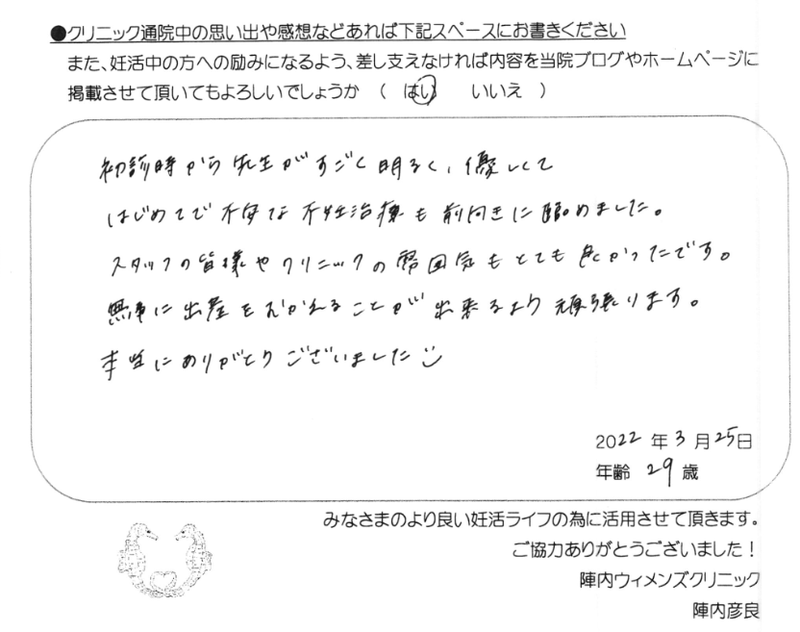 ●クリニック通院中の思い出や感想などあれば下記スペースにお書きください
また、妊活中の方への励みになるよう、差し支えなければ内容を当院ブログやホームページに
掲載させて頂いてもよろしいでしょうか ( はい いいえ )
初診時から先生がすごく明るく、優しくて
はじめてで不安な不妊治療も前向きに臨めました。
スタッフの皆様やクリニックの雰囲気もとても良かったです。
無事に出産をむかえることが出来るよう頑張ります。
本当にありがとうございました
2022 年 3 月 25日
年齢 29 歳
みなさまのより良い妊活ライフの為に活用させて頂きます。
ご協力ありがとうございました!
陣内ウィメンズクリニック
陣内彦良